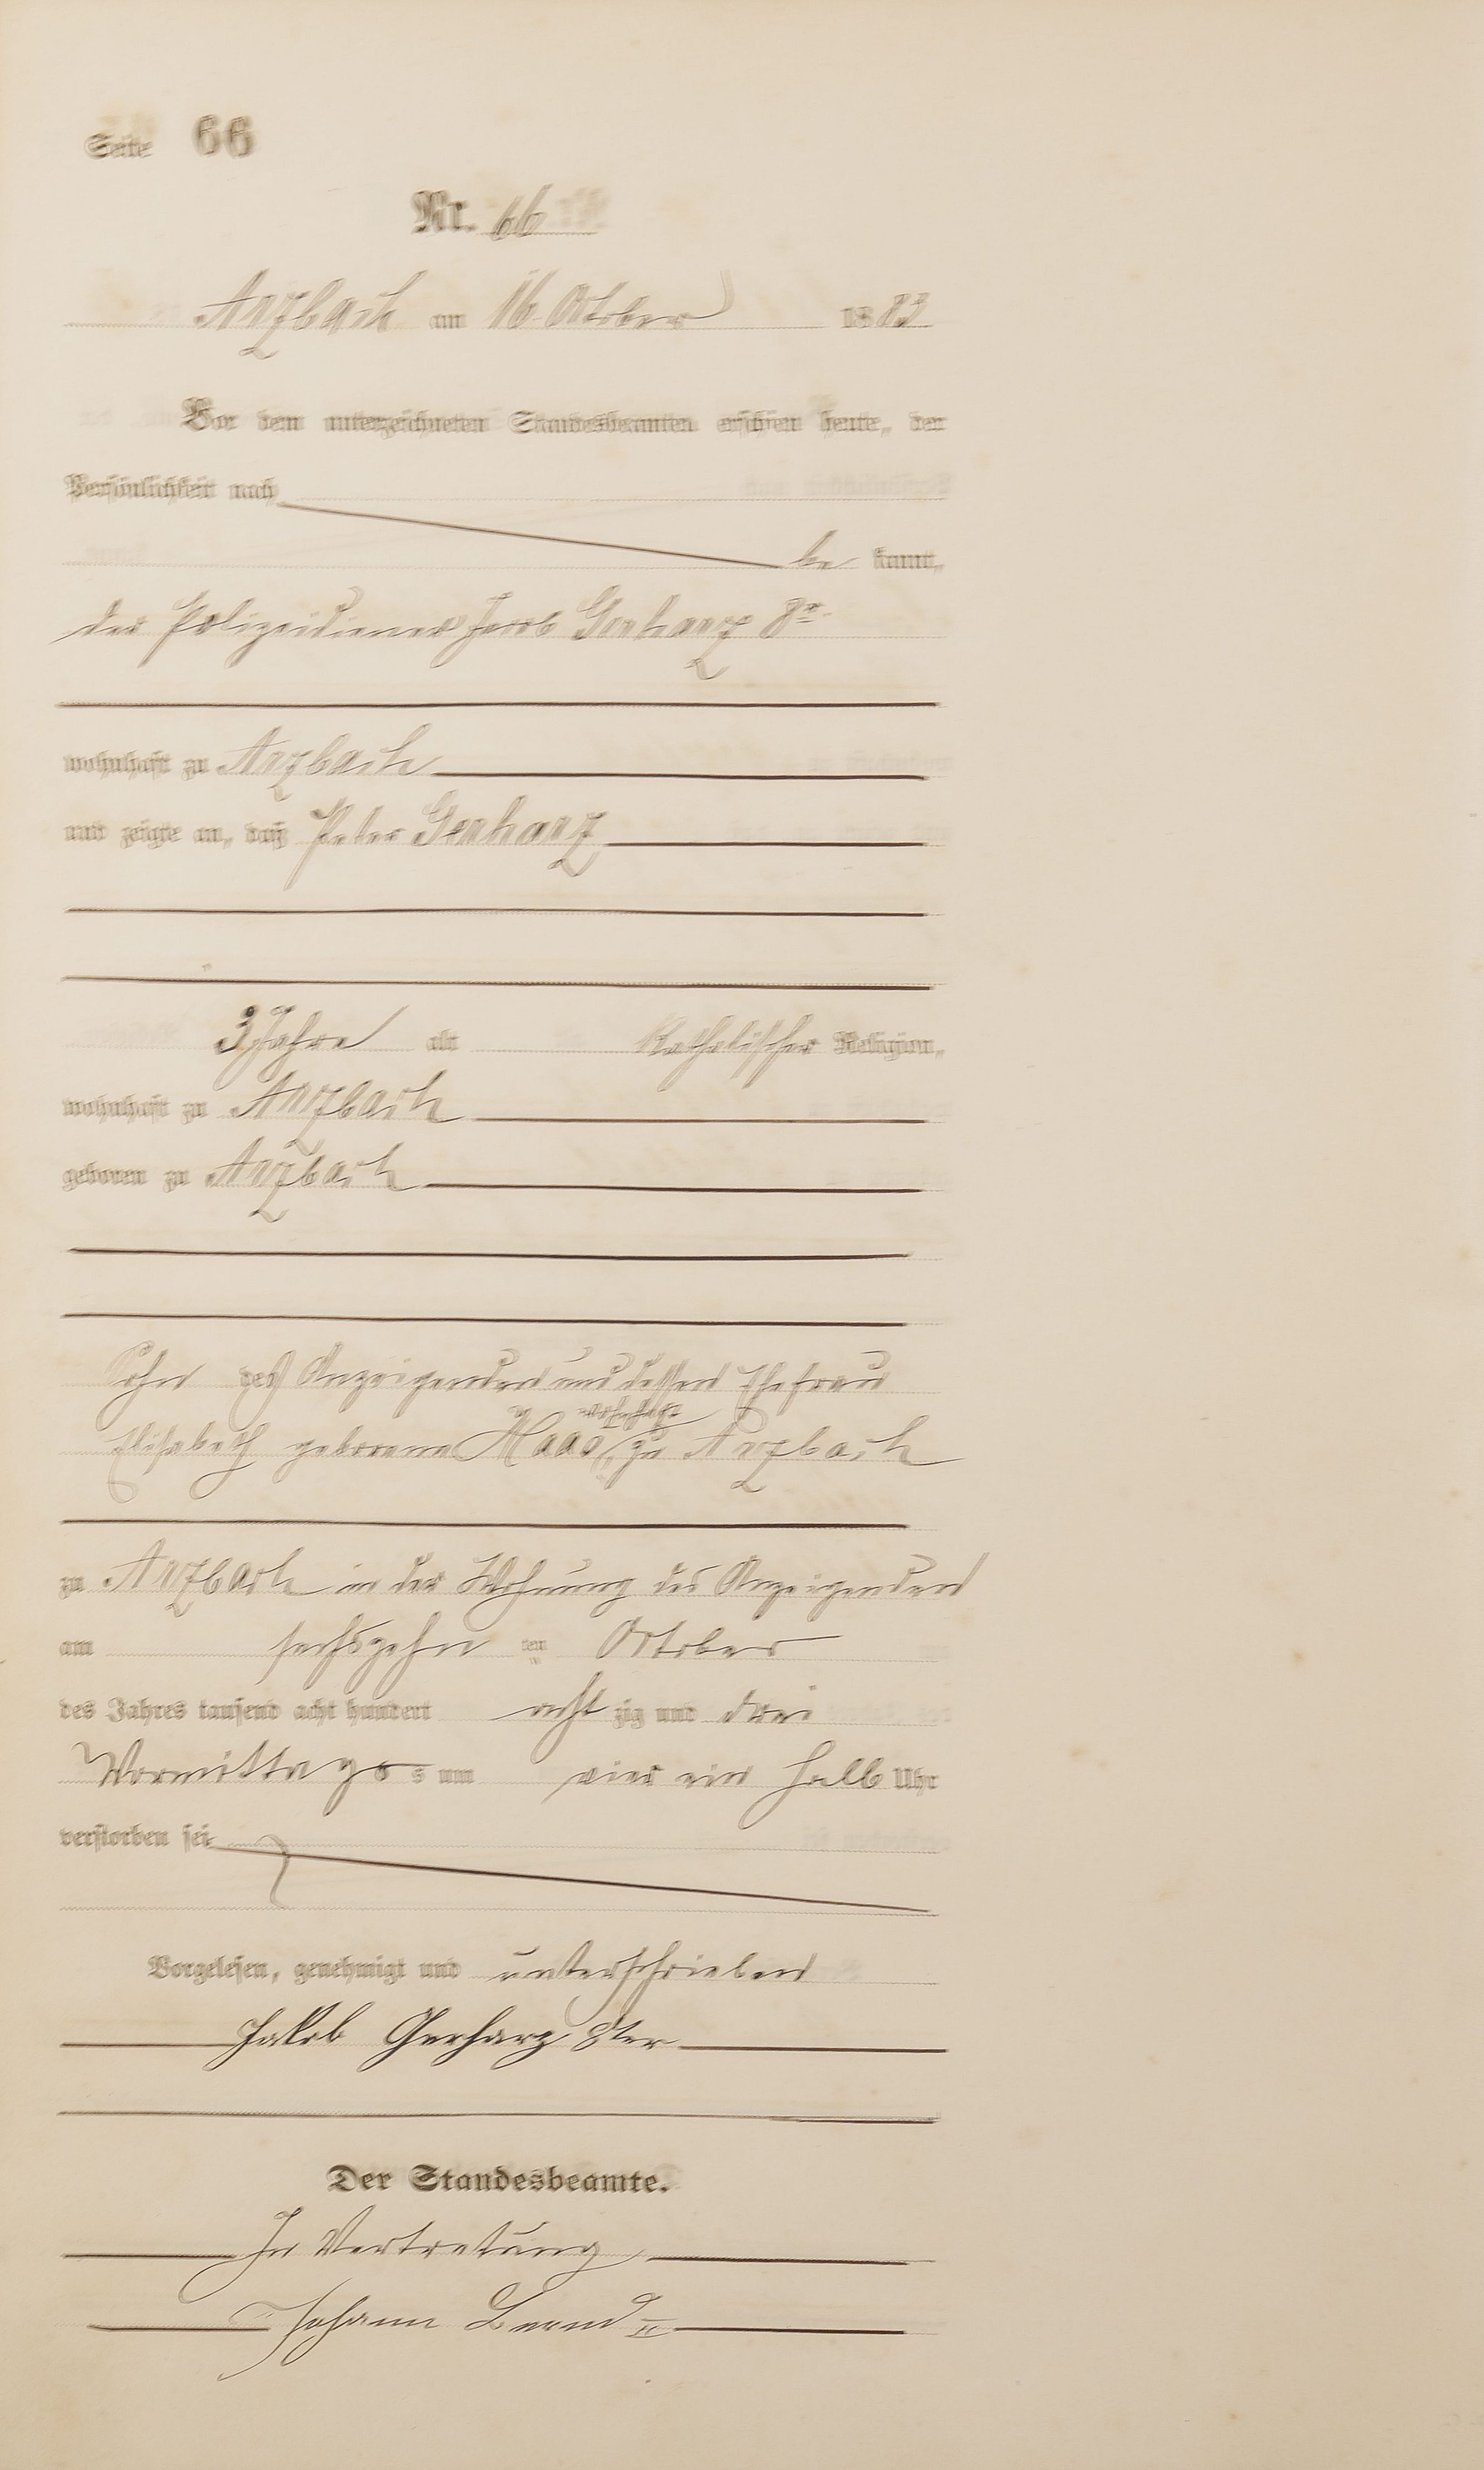 Seite 66
Nr. 66
Arzbach am 16. October 1883
Vor dem unterzeichneten Standesbeamten erschien heute, der
Persönlichkeit nach
be kannt,
der Polizeidiener Jacob Gerharz 8r
wohnhaft zu Arzbach
und zeigte an, daß Peter Gerharz
3 Jahre alt katholischer Religion,
wohnhaft zu Arzbach
geboren zu Arzbach
Sohn des Anzeigenden und dessen Ehefrau
wohnhaft
Elisabeth geborene Haas, zu Arzbach
zu Arzbach in der Wohnung des Anzeigenden
am sechszehn ten October
des Jahres tausend acht hundert acht zig und drei
Vormittags s um vier ein halb Uhr
verstorben sei
Vorgelesen, genehmigt und unterschrieben
Jakob Gerharz 8ter
Der Standesbeamte.
In Vertretung
Johann Bernd II